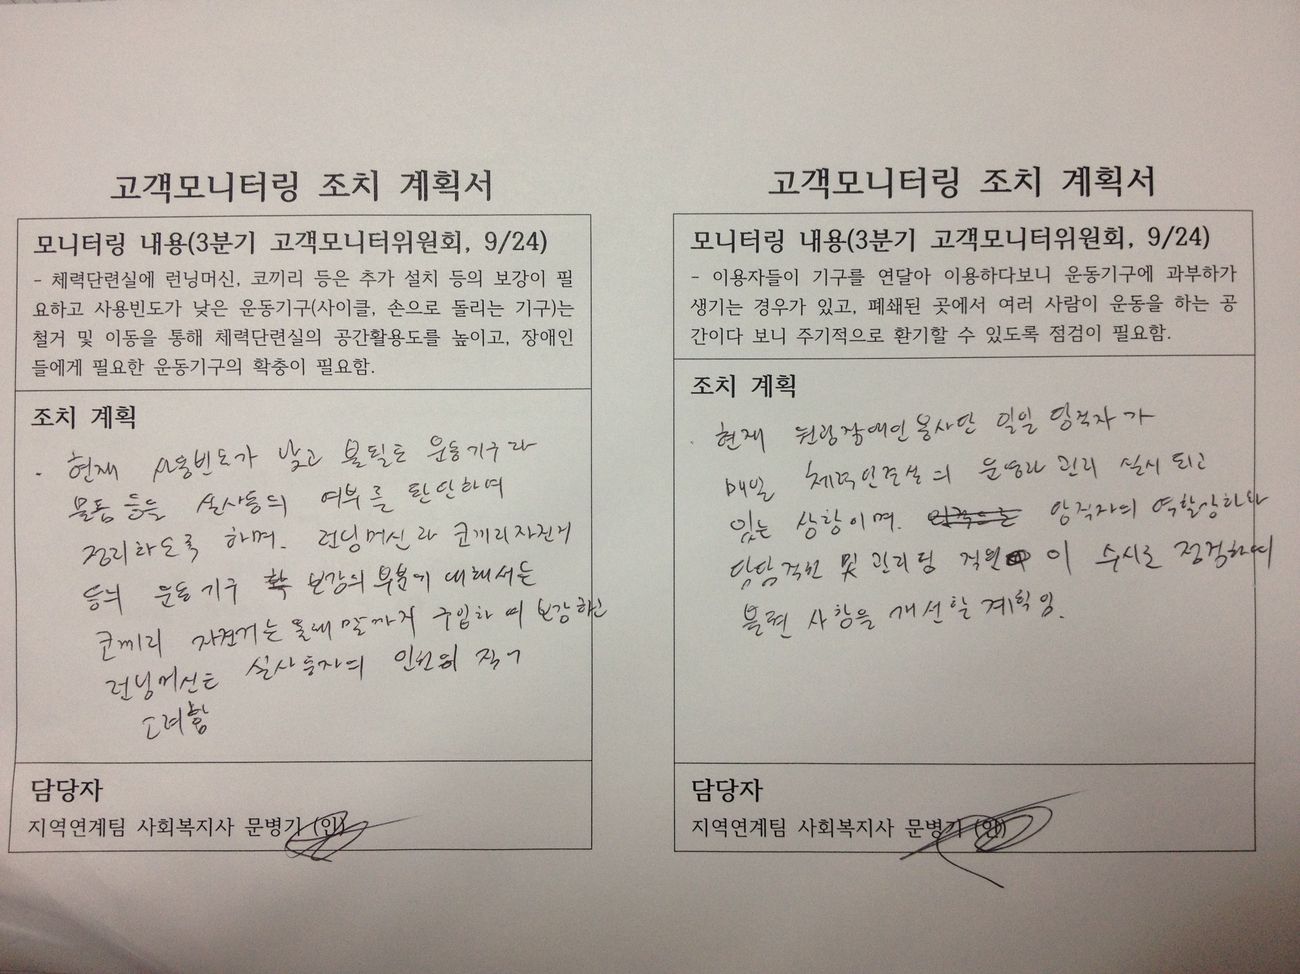 고객모니터링 조치 계획서
모니터링 내용(3분기 고객모니터위원회, 9/24)
- 체력단련실에 런닝머신, 코끼리 등은 추가 설치 등의 보강이 필
요하고 사용빈도가 낮은 운동기구(사이클, 손으로 돌리는 기구)는
철거 및 이동을 통해 체력단련실의 공간활용도를 높이고, 장애인
들에게 필요한 운동기구의 확충이 필요함.
조치 계획
· 현재 사용빈도가 낮고 불필요 운동기구라
물품 등을 실사용의 여부를 판단하여
정리하도록 하며. 런닝머신과 코끼리자전거
등의 운동기구 보강의 부분에 대해서는
코끼리 자전거는 올해 말까지 구입하여 보강하고
런닝머신은 실사용자의 인원이 적어
고려함
담당자
지역연계팀 사회복지사 문병기 (인)
고객모니터링 조치 계획서
모니터링 내용(3분기 고객모니터위원회, 9/24)
- 이용자들이 기구를 연달아 이용하다보니 운동기구에 과부하가
생기는 경우가 있고, 폐쇄된 곳에서 여러 사람이 운동을 하는 공
간이다 보니 주기적으로 환기할 수 있도록 점검이 필요함.
조치 계획
· 현재 원광장애인봉사단 일일 당직자가
매일 운영과 관리 실시 되고
있는 상황이며. 당직자의 역할강화와
담당직원 및 관리팀 직원이 수시로 점검하여
불편 사항을 개선할 계획임.
담당자
지역연계팀 사회복지사 문병기 (인)